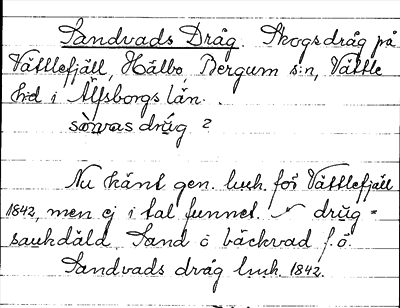 Sandvads Dråg. Skogsdråg på
Vättlefjäll, Hålbo, Bergum s:n, Vättle
h:d i Älfsborgs län.
drág ?
Nu känt gen. lusk. för Vättlefjäll
1842, men ej i tal funnet. drŭg =
saukdäld. Sand o bäckvad f. ö.
Sandvads dråg lusk. 1842.